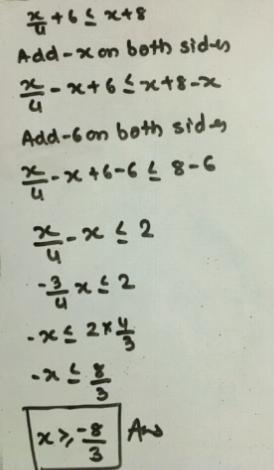 x/4 + 6 ≤ x + 8
Add - x on both sides
x/4 - x + 6 ≤ x + 8 - x
Add - 6 on both sides
x/4 - x + 6 - 6 ≤ 8 - 6
x/4 - x ≤ 2
-3/4 x ≤ 2
-x ≤ 2 × 4/3
-x ≤ 8/3
x ≥ -8/3 Ans